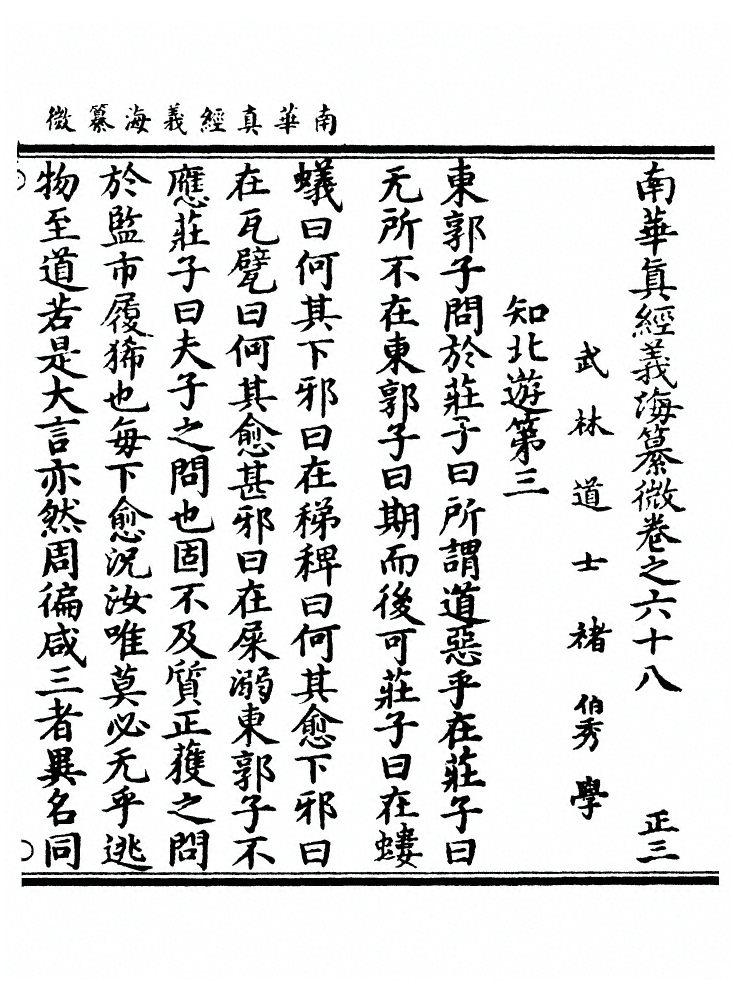 南華真經義海纂微
南華真經義海纂微卷之六十八 正三
武林道士褚伯秀學
知北遊第三
東郭子問於莊子曰所謂道惡乎在莊子曰
无所不在東郭子曰期而後可莊子曰在螻
蟻曰何其下邪曰在稊稗曰何其愈下邪曰
在瓦甓曰何其愈甚邪曰在屎溺東郭子不
應莊子曰夫子之問也固不及質正獲之問
於監市履狶也每下愈況汝唯莫必无乎逃
物至道若是大言亦然周徧咸三者異名同